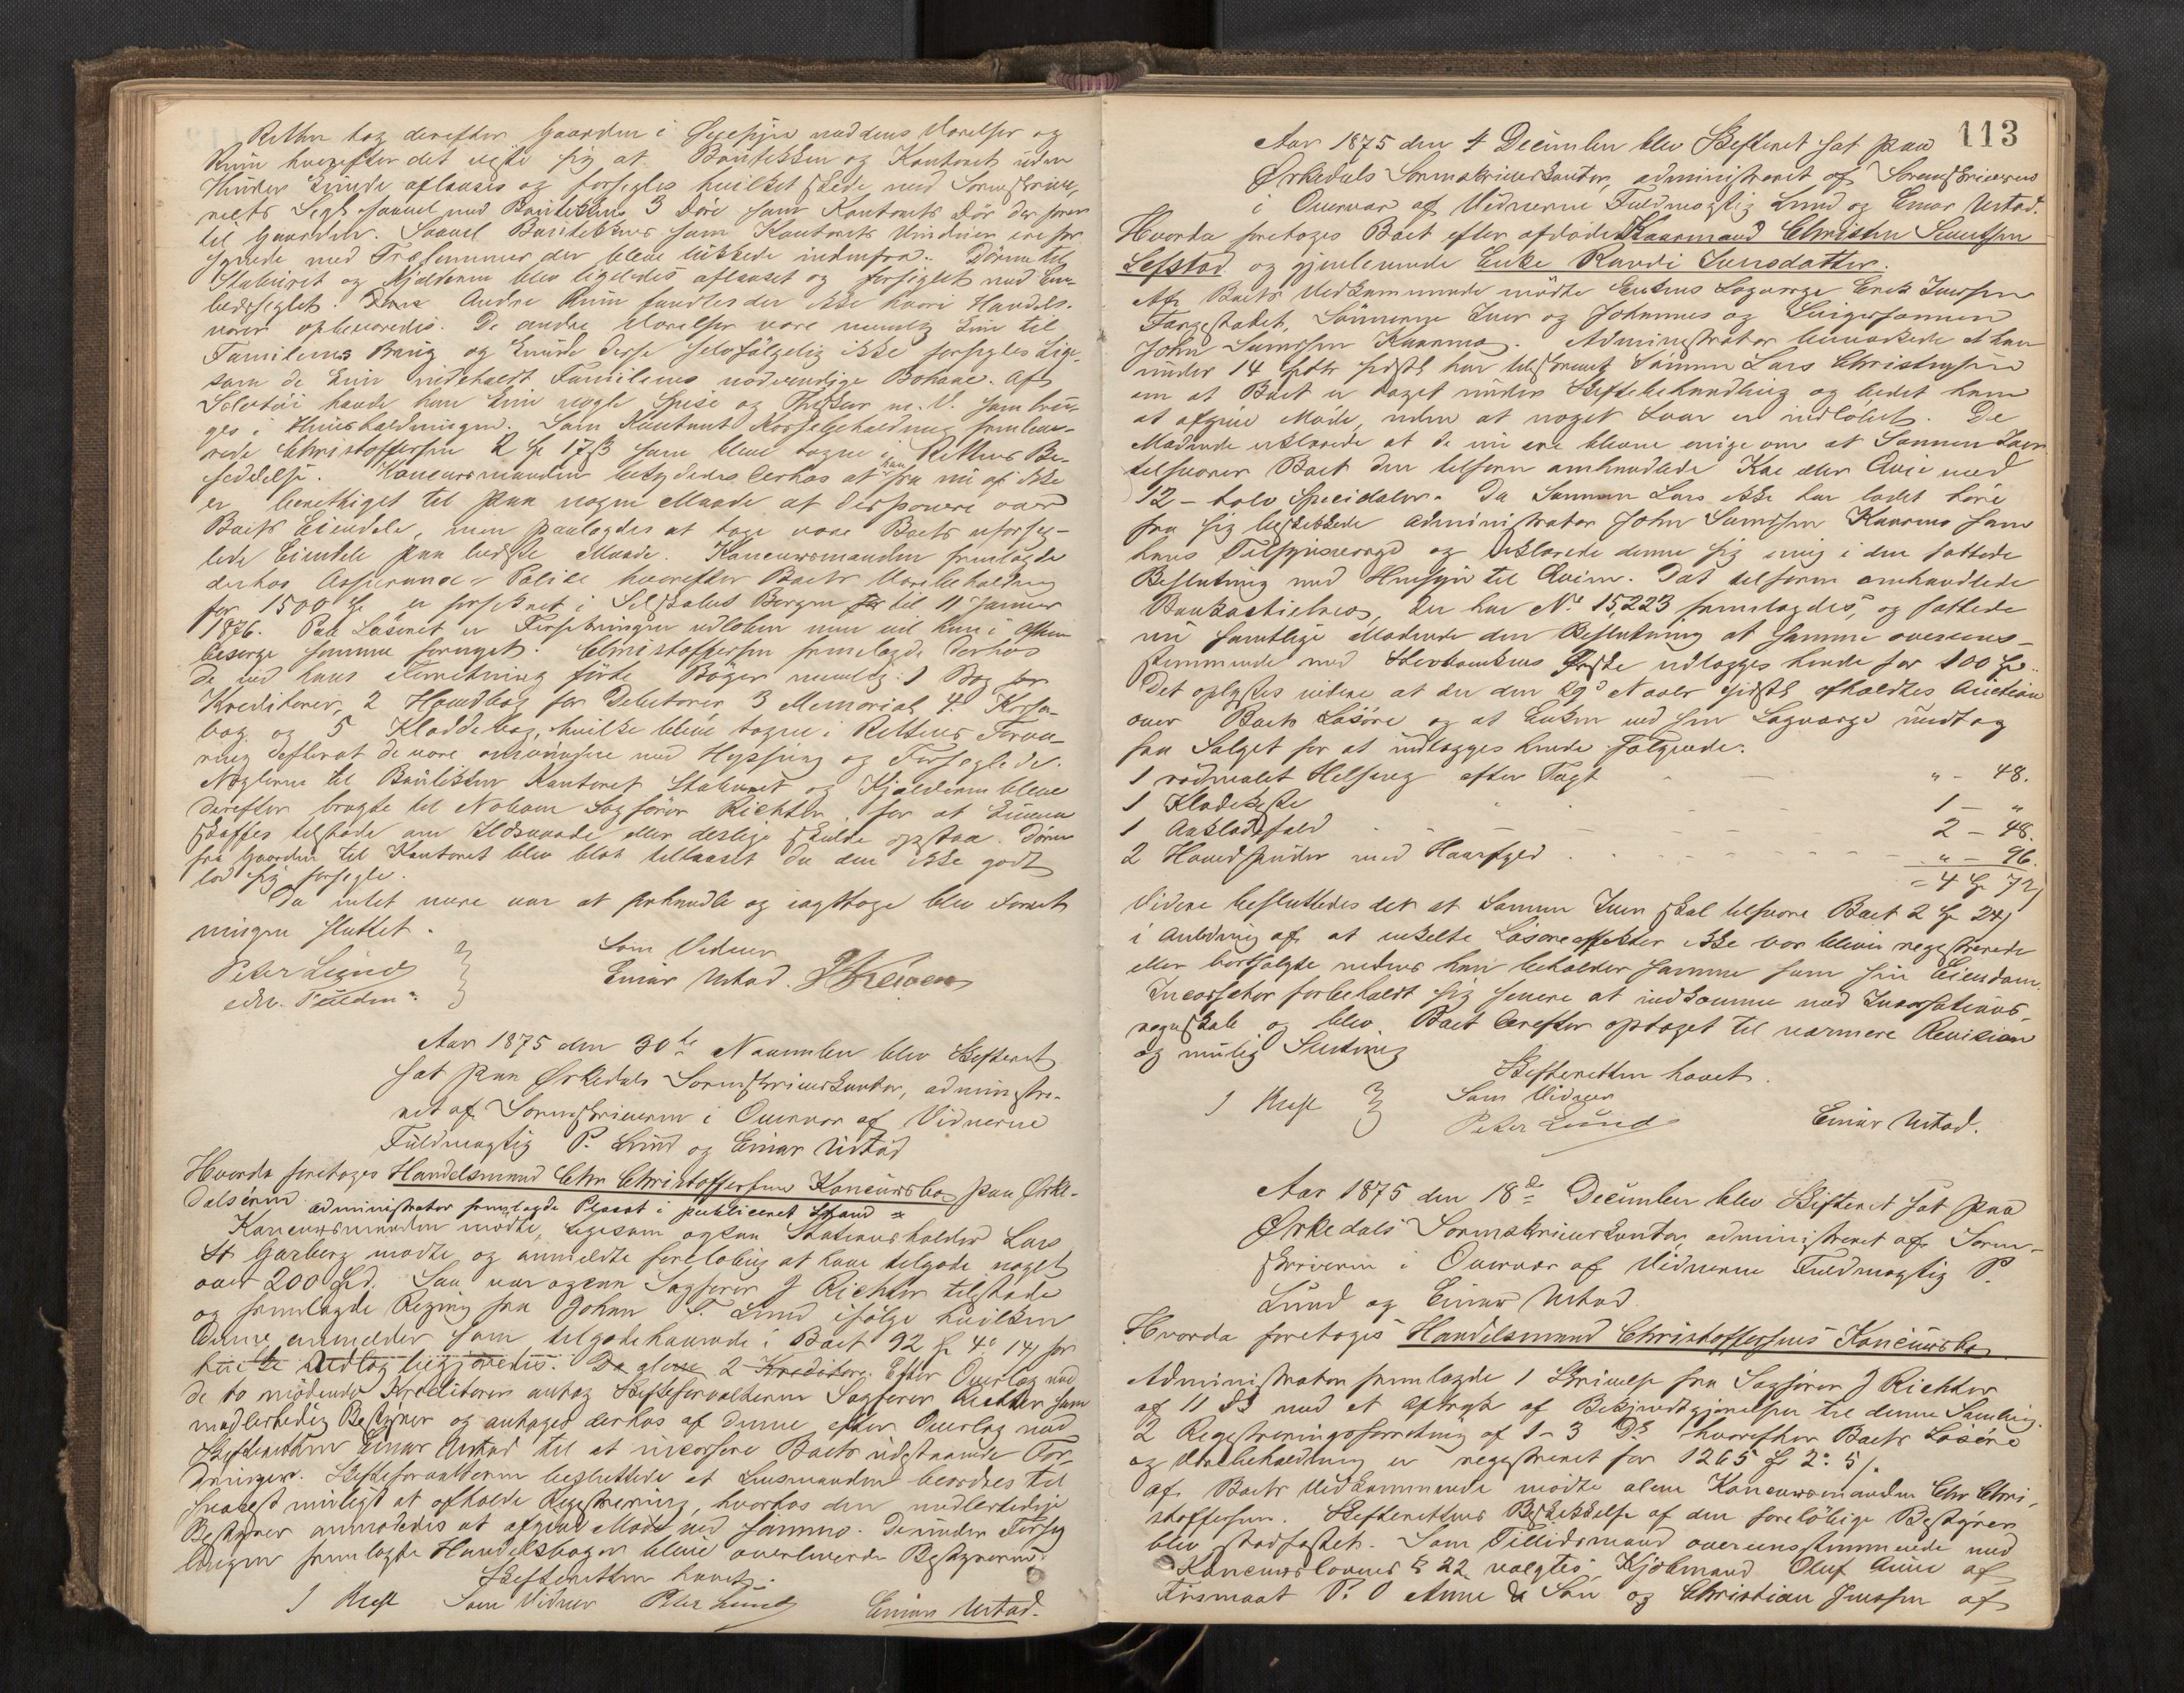 Retten tog derefter Gaarden i Øiesyn med dens Værelser og
Rum hvorefter det viste sig at Boutikken og Kontoret uden
Hinder kunde aflaases og forsegles hvilket skede med Sorenskrive-
riets Segl saavel med Boutikkens 3 Døre som Kontorets Dør der fører
til Gaarden. Saavel Boutikkens som Kontorets Vinduer ere for
synede med Trælemmer der bleve lukkede indenfra. Døren til
Staburet og Kjelderen blev ligeledes aflaaset og forseglet med Em-
bedsseglet. Andre Rum fandtes der ikke hvori Handels-
varer opbevaredes. De andre Værelser vare nemlig kun til
Familiens Brug og kunde disse selvfølgelig ikke forsegles lige-
som de kun indeholdt Familiens nødvendige Bohave. Af
Sølvtøi havde han kun nogle Spise og Theskeer m. V. som bru-
ges i Huusholdningen. Som Kontant Kassebeholdning fremleve-
rede Christoffersen 2 Spd 17 ß som bleve tagne i Rettens Be-
siddelse. Koncursmanden betydedes derhos at han fra nu af ikke
er berettiget til paa nogen Maade at disponere over
Boets Eiendele, men paalagdes at tage vare Boets uforseg-
lede Eiendele paa bedste Maade. Koncursmanden fremlagde
derhos Assurance-Police hvorefter Boets Varebeholdning
for 1500 Spd er forsikret i Selskabet Bergen til 11 Januar
1876. Paa Løsøret er Forsikringen udløben men vil han i Aften
besørge samme fornyet. Christoffersen fremlagde derhos
de ved hans Forretning førte Bøger nemlig: 1 Bog for
Kreditorer, 2 Haandbog for Debitorer 3 Memorial 4 Kasse-
bog og 5 Kladdebog, hvilke bleve tagne i Rettens Forva-
ring efterat de vare omvundne med Hyssing og Forseglede.
Nøglerne til Boutikken Kontoret Staburet og Kjelderen bleve
derefter bragte til Naboen Sagfører Richter for at kunne
skaffes tilstede om Ildsvaade eller deslige skulde opstaa. Døren
fra Gaarden til Kontoret blev blot tillaaset da den ikke godt
lod sig forsegle.
Da intet mere var at forhandle og iagttage blev Forret-
ningen sluttet.
Som Vidner
Peter Lund Einar Ustad.
Aar 1875 den 30te November blev Skifteret
sat paa Ørkedals Sorenskriverkontor, administre-
ret af Sorenskriveren i Overvær af Vidnerne
Fuldmægtig P. Lund og Einar Ustad
Hvorda foretoges Handelsmand Chr Christoffersens Koncursbo paa Ørke-
dalsøren. Administrator fremlagde Placat i publiceret Stand
Koncursmanden mødte, ligesom ogsaa Stationsholder Lars
Garberg mødte og anmeldte foreløbig at have tilgode noget
over 200 Spd. Saa var ogsaa Sagfører J Richter tilstede
og fremlagde Regning fra Johan T Lund ifølge hvilken
denne anmelder som tilgodehavende i Boet 92 Spd 4 14 for
hvilke Udlæg begjæredes. 2 Kreditorer. Efter Overlæg med
de to mødende Kreditorer antog Skifteforvalteren Sagfører Richter som
midlertidig Bestyrer og antoges derhos af denne efter Overlæg med
Skifteretten Einar Ustad til at incassere Boets udestaaende For-
dringer. Skifteforvalteren besluttede at Lensmanden beordres til
snarest muligt at afholde Registrering, hvorhos den midlertidige
Bestyrer anmodedes at afgive Møde ved samme. De under Forseg-
lingen fremlagte Handelsbøger bleve overleverede Bestyreren.
Skifteretten hævet.
J Kreft Som Vidner Peter Lund Einar Ustad.
113
Aar 1875 den 4 December blev Skifteret sat paa
Ørkedals Sorenskriverkontor, administreret af Sorenskriveren
i Overvær af Vidnerne Fuldmægtig Lund og Einar Ustad.
Hvorda foretoges Boet efter afdøde Kaarmand Christen Sivertsen
Lefstad og gjenlevende Enke Randi Iversdatter.
Af Boets Vedkommende mødte Enkens Laugværge Erik Iversen
Fangestabet, Sønnerne Iver og Johannes og Svigersønnen
John Kaarmo. Administrator bemærkede at han
under 14 Septbr sidstl har tilskrevet Sønnen Lars Christensen
om at Boet er taget under Skiftebehandling og bedet ham
at afgive Møde, uden at noget Svar er indløbet. De
Mødende erklærede at de nu ere blevne enige om at Sønnen Iver
tilsvarer Boet den tilforn omhandlede Koe eller Qvie med
12 - tolv Speciedaler. Da Sønnen Lars ikke har ladet høre
fra sig beskikkede Administrator John Kaarmo som
hans Tilsynsværge og erklærede denne sig enig i den fattede
Beslutning med Hensyn til Qvien. Det tilforn omhandlede
der har No 15,223 fremlagdes, og fattede
nu samtlige Mødende den Beslutning at samme overens-
stemmende med Ønske udlægges hende for 100 Spd.
Det oplystes videre at der den 29de Novbr sidstl afholdtes Auction
over Boets Løsøre og at Enken ved sin Laugværge undtog
fra Salget for at udlægges hende Følgende:
1 rødmalet Helseng efter Taxt " - 48.
1 Klædekiste 1 - "
1 Aakladsfæld 2 - 48.
2 Hovedpuder med Haarfyld " - 96.
= 4 Spd 72
Videre besluttedes det at Sønnen Iver skal tilsvare Boet 2 Spd 24
i Anledning af at enkelte Løsøreeffekter ikke var bleven registrerede
eller bortsolgte medens han beholder samme som sin Eiendom.
Incassator forbeholdt sig senere at indkomme med Incassations-
regnskab og blev Boet derefter optaget til nærmere Revision
og mulig Slutning
Skifteretten hævet.
J Kreft Som Vidner
Peter Lund Einar Ustad.
Aar 1875 den 18de December blev Skifteret sat paa
Ørkedals Sorenskriverkontor administreret af Soren-
skriveren i Overvær af Vidnerne Fuldmægtig P.
Lund og Einar Ustad.
Hvorda foretoges Handelsmand Christoffersens Koncursbo
Administrator fremlagde 1 Skrivelse fra Sagfører J Richter
af 11 ds med et Aftryk af Bekjendtgjørelsen til denne Samling.
2 Registreringsforretning af 1-3 Ds hvorefter Boets Løsøre
og Varebeholdning er registreret for 1265 Spd 2 5 ß.
Af Boets Vedkommende mødte alene Koncursmanden Chr Chri-
stoffersen. Skifterettens Beskikkelse af den foreløbige Bestyrer
blev stadfæstet. Som Tillidsmænd overensstemmende med
Koncurslovens § 22 valgtes Kjøbmand Oluf Aune af
Firmaet P. O Aune & Søn og Christian Jenssen af